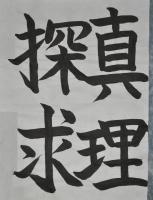 真理
探求